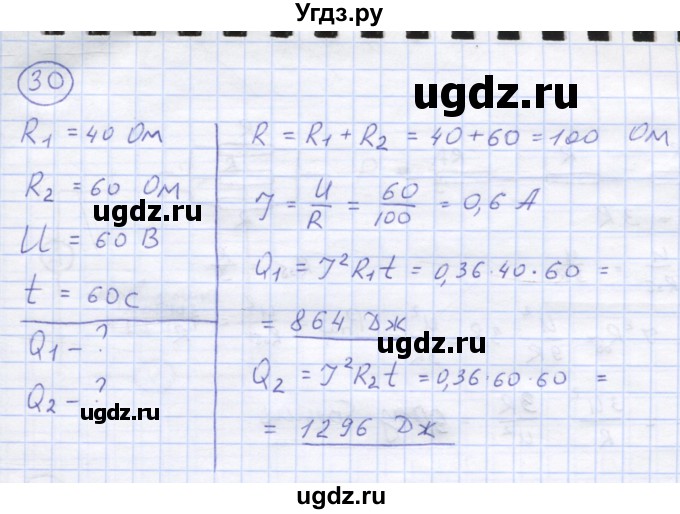 Угдз.ру
30
ugdz.ru
R1 = 40 Ом
R2 = 60 Ом
ugdz.ru
U = 60 В
t = 60 с
Q1 - ?
Q2 - ?
ugdz.ru
R = R1 + R2 = 40 + 60 = 100 Ом
J = U/R = 60/100 = 0,6 А
ugdz.ru
Q1 = J²R1t = 0,36·40·60 =
= 864 Дж
ugdz.ru
Q2 = J²R2t = 0,36·60·60 =
= 1296 Дж
ugdz.ru
ugdz.ru